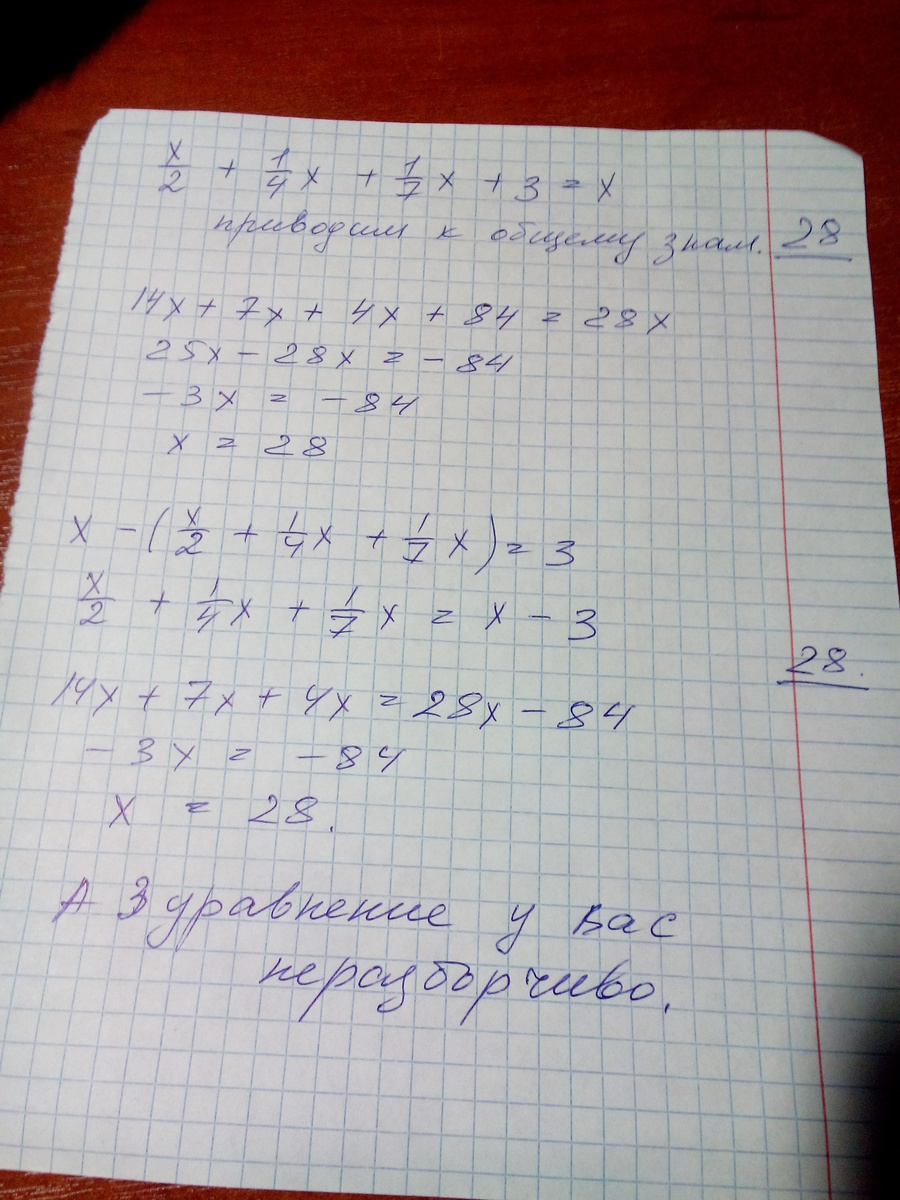 x/2 + 1/4 x + 1/7 x + 3 = x
приводим к общему знам. 28
14x + 7x + 4x + 84 = 28x
25x - 28x = - 84
- 3x = - 84
x = 28
x - (x/2 + 1/4 x + 1/7 x) = 3
x/2 + 1/4 x + 1/7 x = x - 3
28.
14x + 7x + 4x = 28x - 84
- 3x = - 84
x = 28.
А 3 уравнение у вас
неразборчиво.